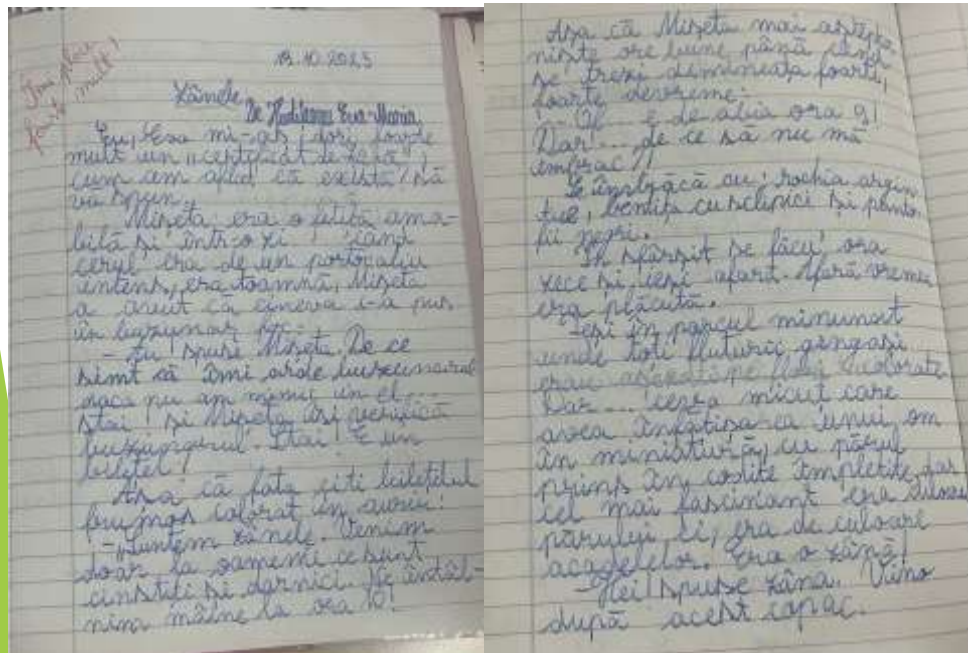 Îmi place
foarte mult!
19.10.2023
Zânele
De Eva-Maria
Eu, Eva mi-aș dori foarte
mult un „certificat de zână",
cum am aflat că există? Să
vă spun.
Mișeta era o fetiță ama-
bilă și într-o zi când
cerul era de un portocaliu
intens, era toamnă, Mișeta
a simțit că cineva i-a pus
în buzunar
- Eu! spuse Mișeta. De ce
simt că îmi arde buzunarul
dacă nu am nimic în el...
Stai! Și Mișeta își verifică
buzunarul. Stai! E un
bilețel!
Așa că fata citi bilețelul
frumos colorat în auriu:
- „Suntem zânele. Venim
doar la oamenii ce sunt
cinstiți și darnici. Ne întâl-
nim mâine la ora 10!
Așa că Mișeta mai așteptă
niște ore bune până când
se trezi dimineața foarte,
foarte devreme:
- Of... e de abia ora 9!
Dar... de ce să nu mă
îmbrac?
Se îmbrăcă cu: rochia argin
tie, bentița cu sclipici și panto-
fii negri.
În sfârșit se făcu ora
zece și ieși afară. Afară vremea
era plăcută.
Ieși în parcul minunat
unde toți fluturii gingași
erau așezați pe flori colorate.
Dar... ceva micuț care
avea înfățișarea unui om
în miniatură, cu părul
prins în codițe împletite, dar
cel mai fascinant era culoarea
părului ei, era de culoare
acadelelor. Era o zână!
- Hei! spuse zâna. Vino
după acest copac.